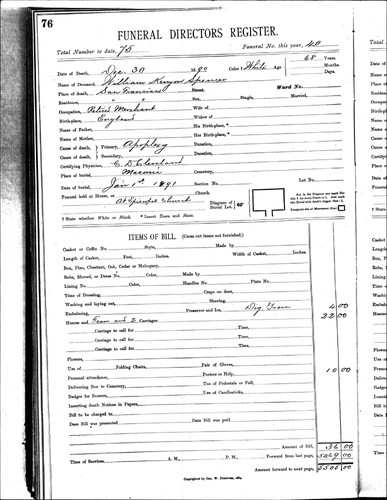 76
FUNERAL DIRECTORS REGISTER.
Total Number to date, 76 Funeral No. this year, 40
Date of Death, Dec. 30 1890 Color † White Age 68 Years. Months. Days.
Name of Deceased, William Kenyon Spencer
Place of death, San Francisco Street, Ward No.
Residence, " " Sex, Single, Married,
Occupation, Retired Merchant Wife of
Birthplace, England Widow of
Name of Father, His Birthplace, *
Name of Mother, Her Birthplace, *
Cause of death, Primary, Apoplexy Duration,
Cause of death, Secondary, Duration,
Certifying Physician, C. D. Cleveland Residence,
Place of burial, Masonic Cemetery,
Date of burial, Jan 1st 1891 Section No. Lot No.
Funeral held at House, or At Episcopal Church Diagram of Burial Lot.
† State whether White or Black. * Insert Town and State.
ITEMS OF BILL. (Cross out items not furnished.)
Casket or Coffin No. Style, Made by
Length of Casket, Feet, Inches. Width of Casket, Inches.
Box, Pine, Chestnut, Oak, Cedar or Mahogany,
Robe, Shroud, or Dress No. Color, Made by
Lining No. Color, Handles No. Plate No.
Time of Dressing, Crape on door,
Washing and laying out, Shaving,
Embalming, Preserver and Ice, Dig Grave 4.00
Hearse and Team and 2 Carriages 22.00
Carriage to call for Time,
Carriage to call for Time,
Carriage to call for Time,
Carriage to call for Time,
Flowers,
Use of Folding Chairs, Pair of Gloves, 10.00
Personal attendance, Porters or Help,
Delivering Box to Cemetery, Use of Pedestals or Pall,
Badges for Bearers, Use of Candlesticks,
Inserting death Notices in Papers,
Bill to be charged to
Date Bill was presented Date Bill was paid
Amount of Bill, 36 00
Time of Services, A. M., P. M., Forward from last page, 5469 00
Amount forward to next page, 5505 00
Copyrighted by Geo. W. Donovan, 1889.